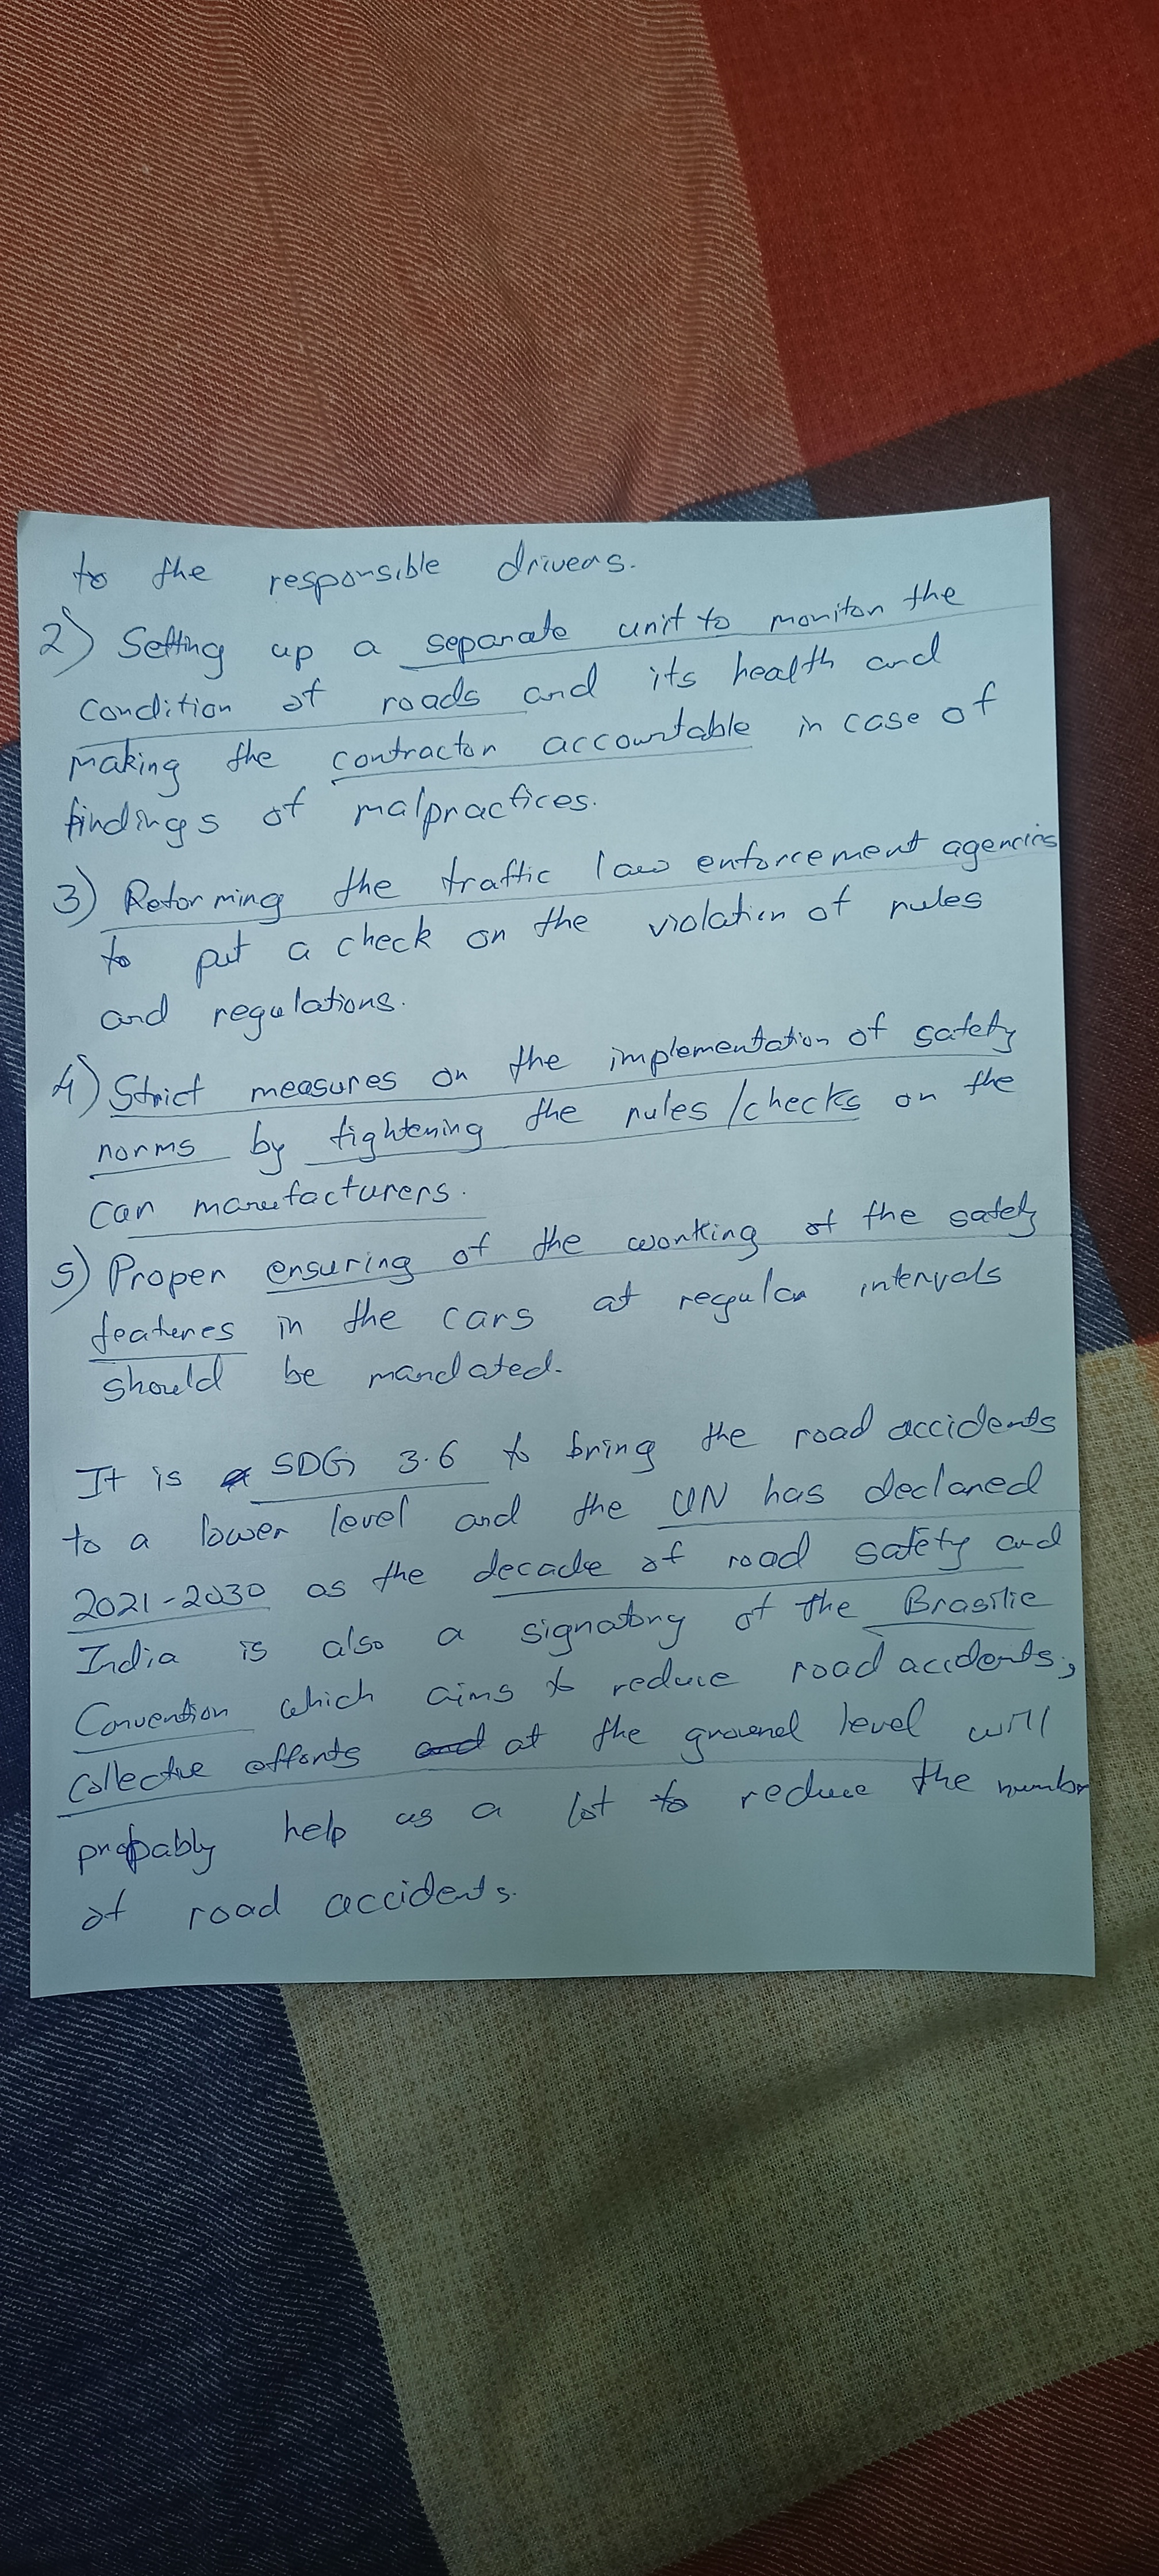 to the responsible drivers.
2) Setting up a separate unit to monitor the
condition of roads and its health and
making the contractor accountable in case of
findings of malpractices.
3) Reforming the traffic law enforcement agencies
to put a check on the violation of rules
and regulations.
4) Strict measures on the implementation of safety
norms by tightening the rules/checks on the
car manufacturers.
5) Proper ensuring of the working of the safety
features in the cars at regular intervals
should be mandated.
It is SDG 3.6 to bring the road accidents
to a lower level and the UN has declared
2021-2030 as the decade of road safety and
India is also a signatory of the Brasilie
Convention which aims to reduce road accidents,
Collective efforts at the ground level will
probably help us a lot to reduce the number
of road accidents.